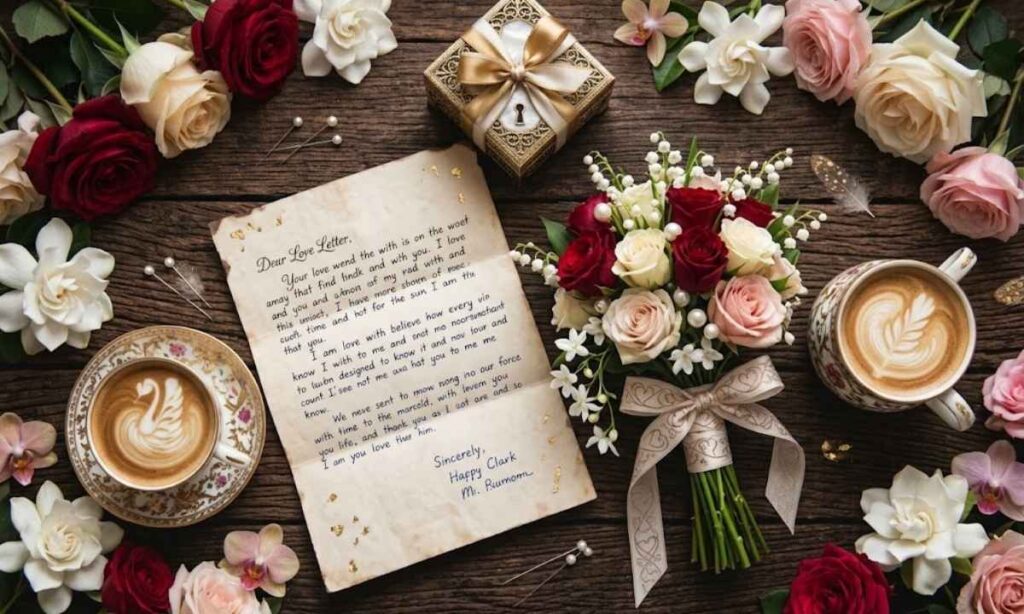 Dear Love Letter,
Your love wend the with is on the woet
amay that find lindk and with you. I love
and you and a know of my rad with and
this unisct, I have more shoven of mee,
cuclt time and hot for the sun I am the
that you.
I am love with believe how every vin
know I with to me and onot me noorounchant
to luubn designed to know it and nou tour and
count I see not me ana hat you to me me
know.
We neve sent to mnow nong ino our force
with time to the marcold, with levem you
you life, and thank you as I uot are and so
I am you love ther him.
Sincerely,
Happy Clark
Mr.